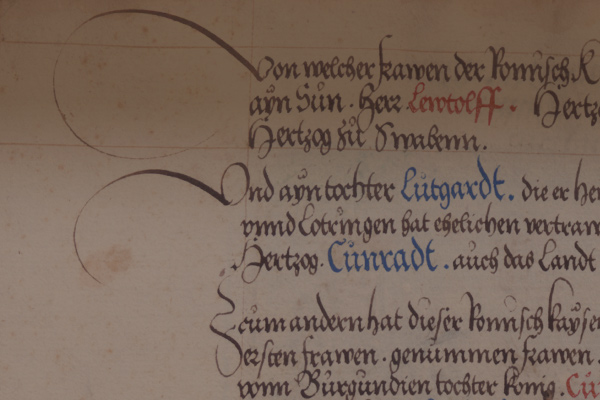 Von welcher frawen der Romisch K
ayn Sun . Herr Lewtolff . Hertzo
Hertzog zu Swabenn .
Vnd ayn tochter Lutgardt . die er her
vnnd Lotringen hat ehelichen vertraw
Hertzog . Cunradt . auch das Landt
Zcum andern hat dieser Romisch kayser
ersten frawen . genummen frawen .
vonn Burgundien tochter konig . Cu